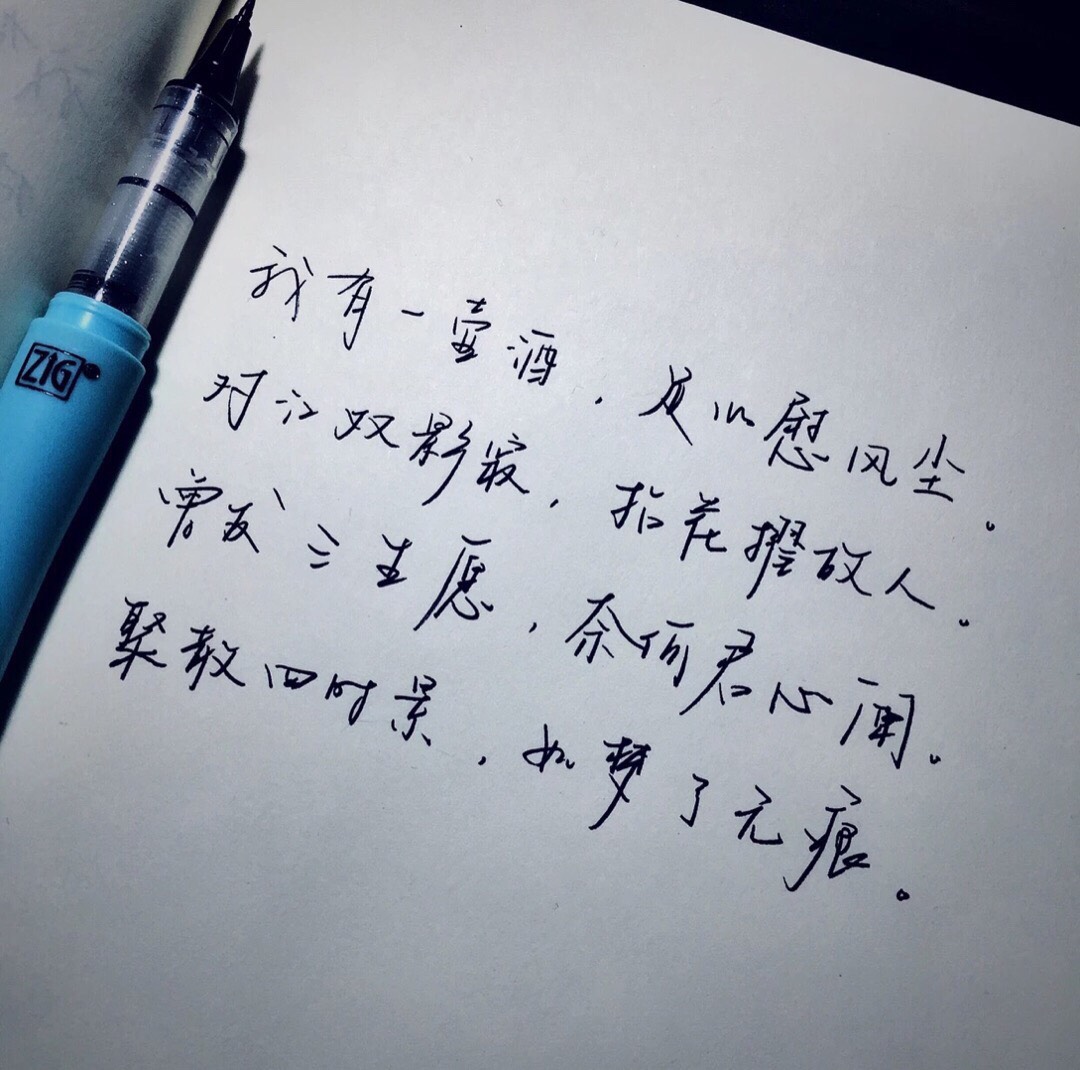 ZIG
我有一壶酒，足以慰风尘。
对江双影寂，拈花揽故人。
曾发三生愿，奈何君心闲。
聚散四时景，如梦了无痕。